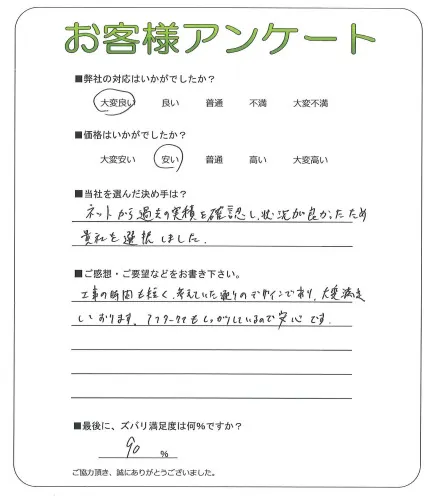 お客様アンケート
■弊社の対応はいかがでしたか？
大変良い 良い 普通 不満 大変不満
■価格はいかがでしたか？
大変安い 安い 普通 高い 大変高い
■当社を選んだ決め手は？
ネットから過去の実績を確認し、状況が良かったため
貴社を選択しました。
■ご感想・ご要望などをお書き下さい。
工事の時間も短く、考えていた通りのデザインであり、大変満足
しております。アフターケアもしっかりしているので安心です。
■最後に、ズバリ満足度は何%ですか？
90 %
ご協力頂き、誠にありがとうございました。